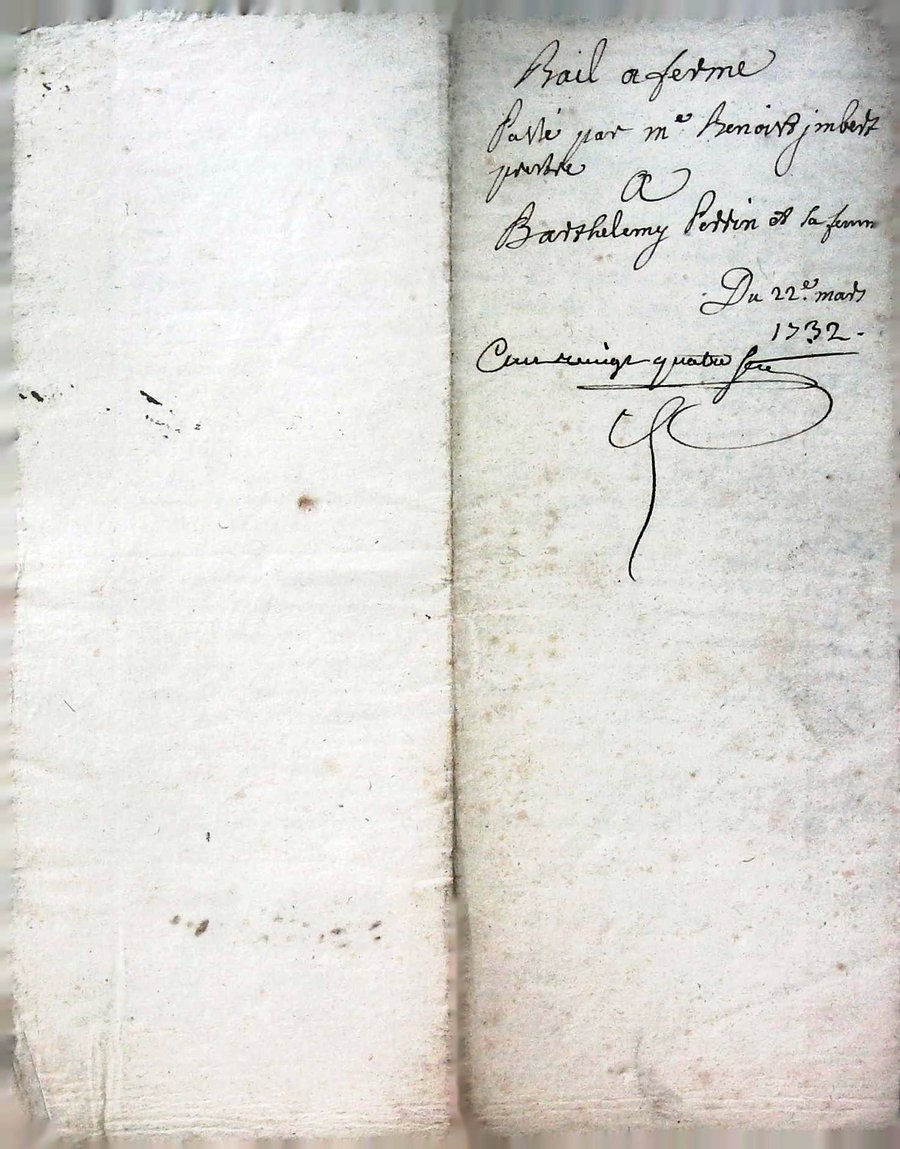 Bail a ferme
Passé par me Benoist jmbert
prestre
A
Barthelemy Perrin et sa femm
Du 22e. mars
1732.
Cent vingt quatre